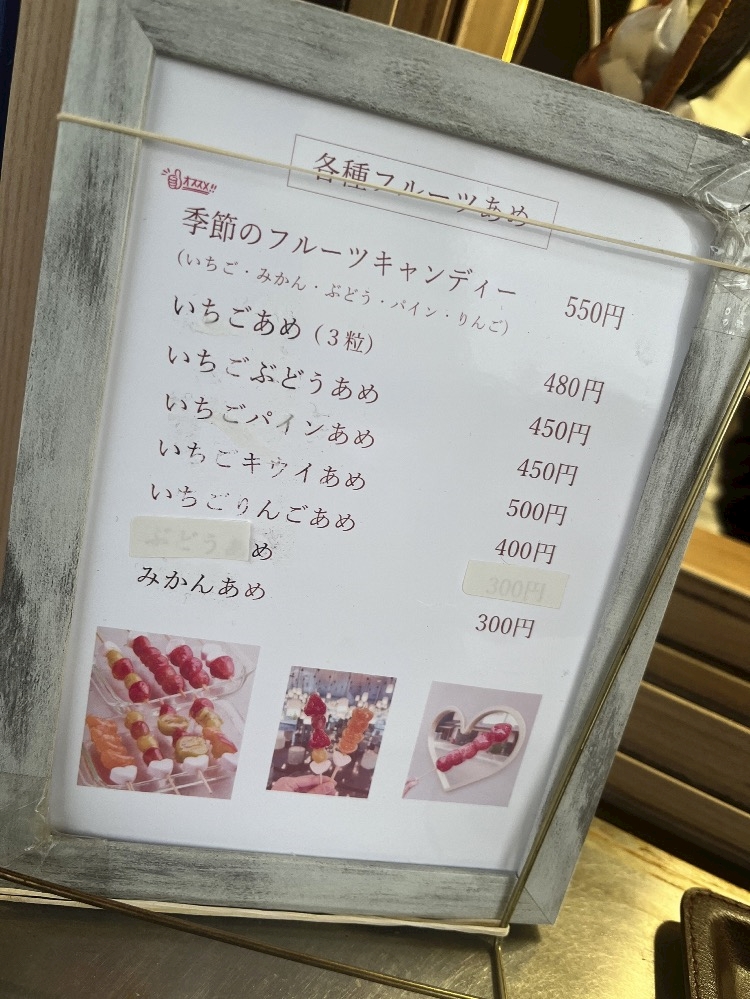 各種フルーツあめ
オススメ!!
季節のフルーツキャンディー 550円
(いちご・みかん・ぶどう・パイン・りんご)
いちごあめ(3粒) 480円
いちごぶどうあめ 450円
いちごパインあめ 450円
いちごキウイあめ 500円
いちごりんごあめ 400円
ぶどうあめ 300円
みかんあめ 300円